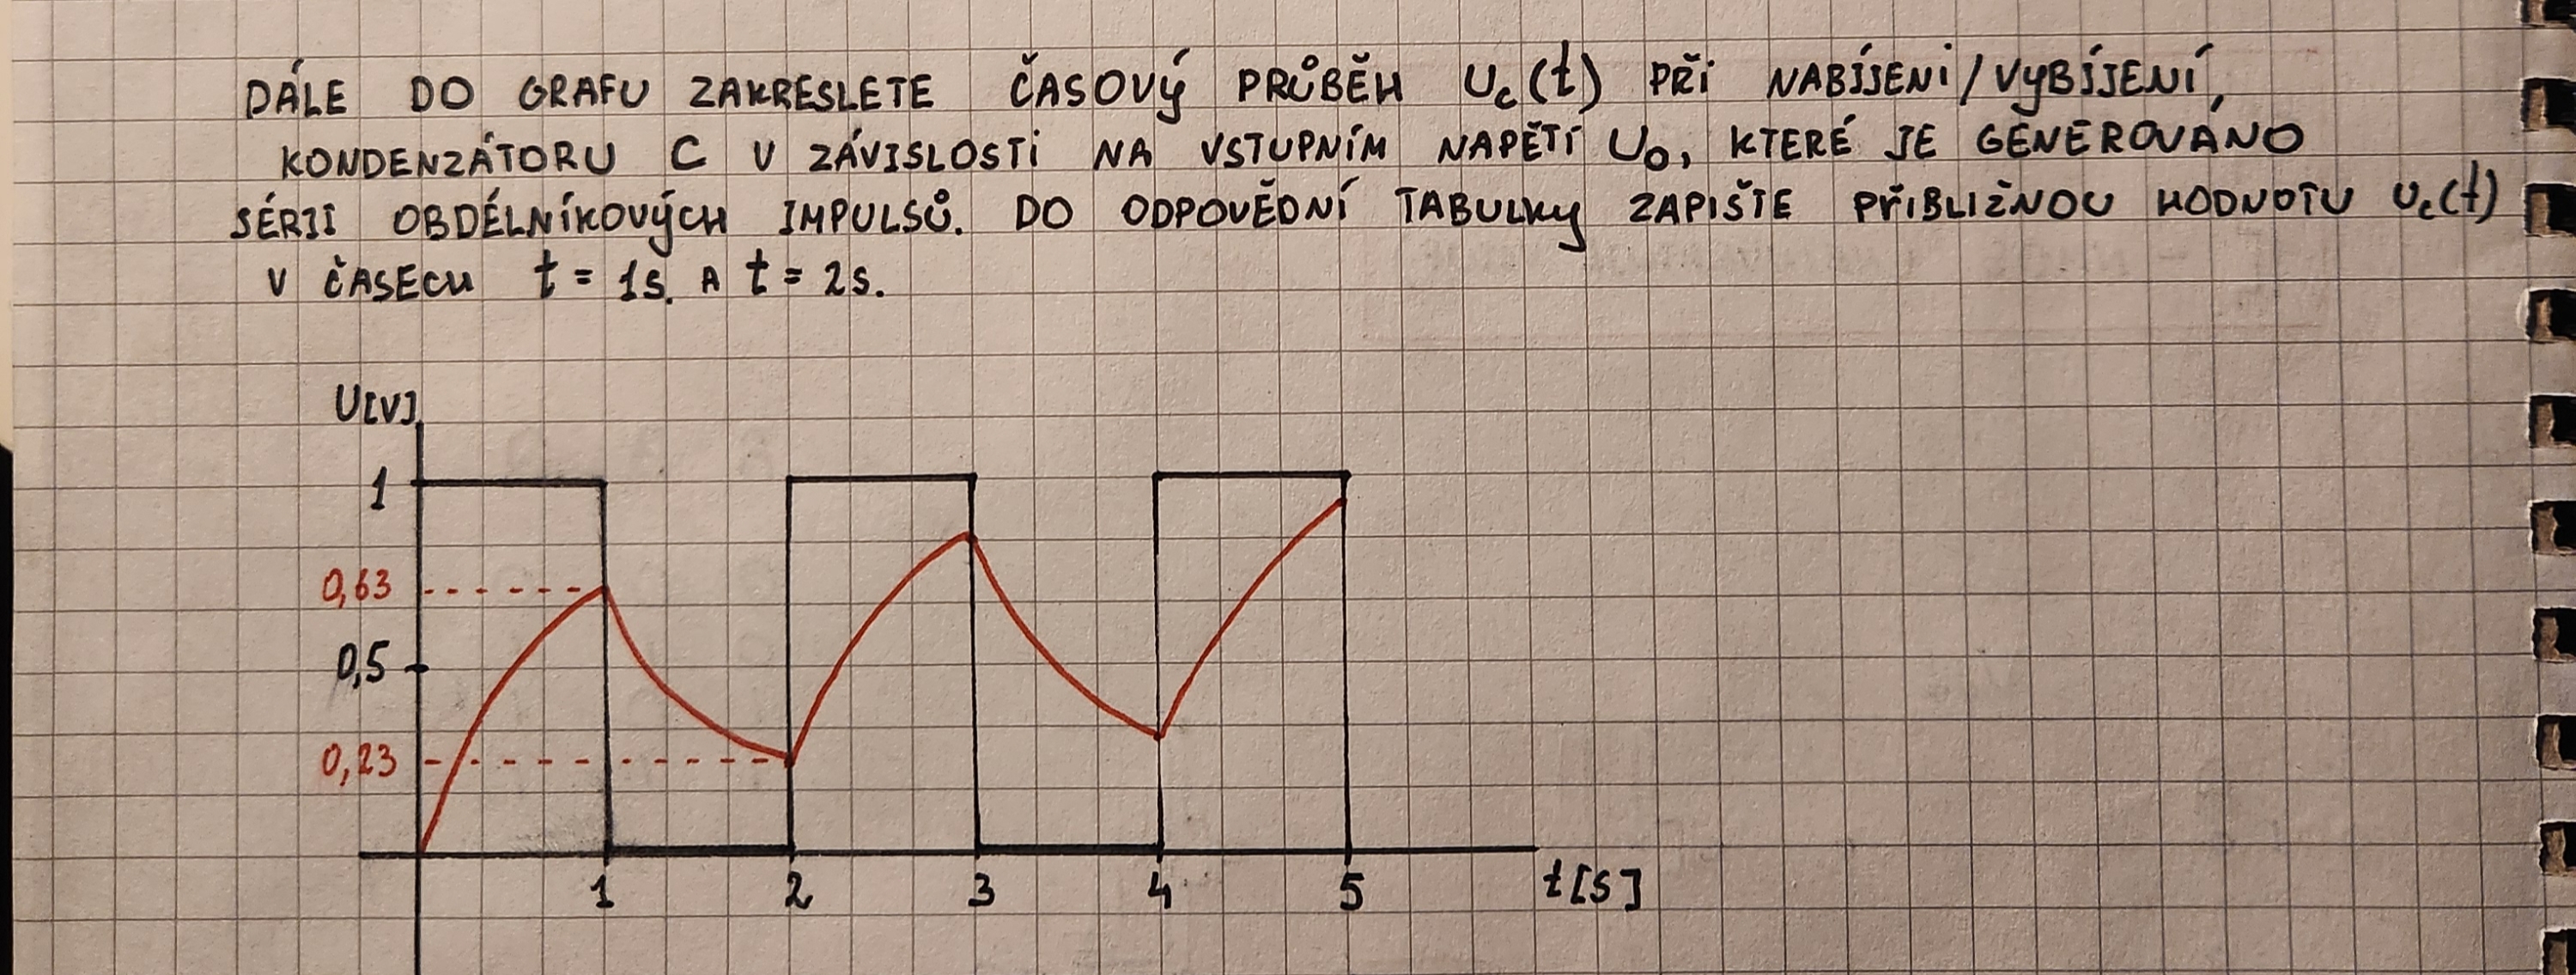 DÁLE DO GRAFU ZAKRESLETE ČASOVÝ PRŮBĚH Uc(t) PŘI NABÍJENÍ/VYBÍJENÍ,
KONDENZÁTORU C V ZÁVISLOSTI NA VSTUPNÍM NAPĚTÍ U0, KTERÉ JE GENEROVÁNO
SÉRIÍ OBDÉLNÍKOVÝCH IMPULSŮ. DO ODPOVĚDNÍ TABULKY ZAPIŠTE PŘIBLIŽNOU HODNOTU Uc(t)
V ČASECH t = 1s. A t = 2s.
U[V]
1
0,63
0,5
0,23
1 2 3 4 5 t[s]